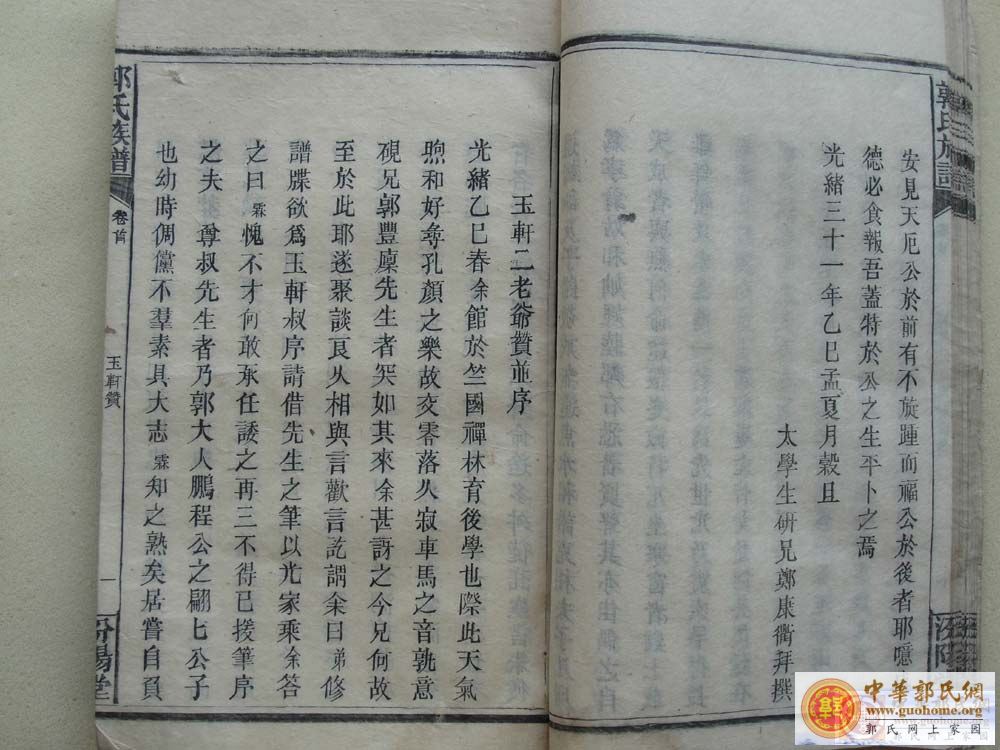 郭氏族譜
安見天厄公於前有不旋踵而福公於後者耶噫
德必食報吾蓋特於公之生平卜之焉
光緒三十一年乙巳孟夏月穀旦
太學生研兄鄭康衢拜撰
玉軒二老爺贊並序
光緒乙巳春余館於竺國禪林育後學也際此天氣
煦和好尋孔顏之樂故交零落久寂車馬之音孰意
硯兄郭豐廩先生者突如其來余甚訝之今兄何故
至於此耶遂聚談良久相與言歡言訖謂余曰弟修
譜牒欲爲玉軒叔序請借先生之筆以光家乘余答
之曰霖愧不才何敢承任諉之再三不得已援筆序
之夫尊叔先生者乃郭大人鵬程公之嗣七公子
也幼時倜儻不羣素具大志霖知之熟矣居嘗自負
郭氏族譜
卷首
玉軒贊
一
汾陽堂
汾陽
中華郭氏網
www.guohome.org
郭氏网上家园